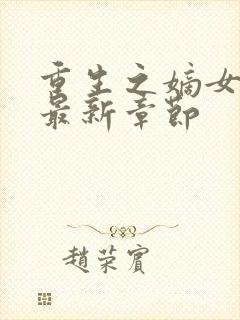 重生之嫡女
最新章节
趙荣賓